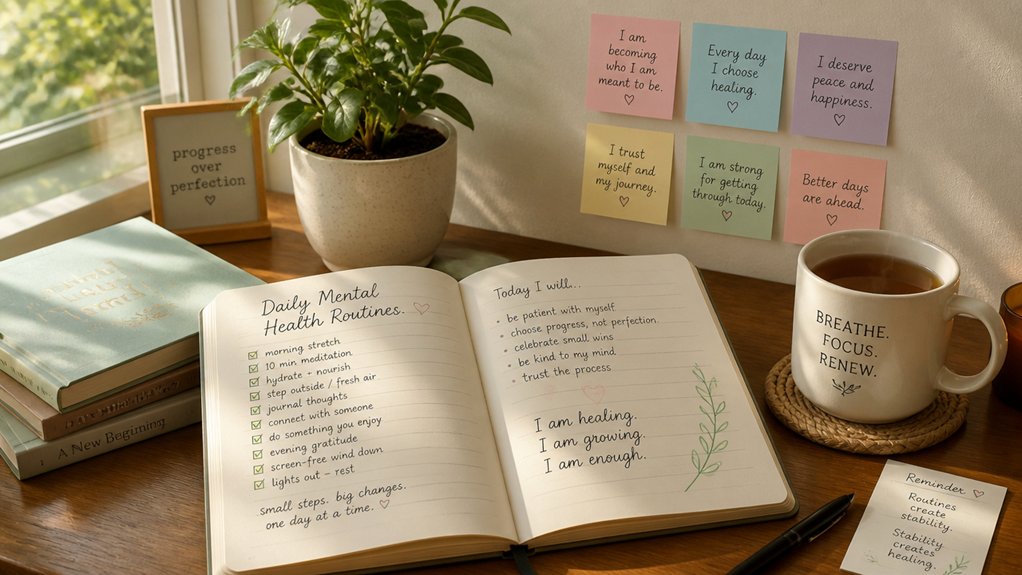 progress
over
perfection
I am
becoming
who I am
meant to be.
Every day
I choose
healing.
I deserve
peace and
happiness.
I trust
myself and
my journey.
I am strong
for getting
through today.
Better days
are ahead.
A New Beginning
Daily Mental
Health Routines.
morning stretch
10 min meditation
hydrate + nourish
step outside / fresh air
journal thoughts
connect with someone
do something you enjoy
evening gratitude
screen-free wind down
lights out – rest
small steps. big changes.
one day at a time.
Today I will...
be patient with myself
choose progress, not perfection.
celebrate small wins
be kind to my mind
trust the process
I am healing.
I am growing.
I am enough.
BREATHE.
FOCUS.
RENEW.
Reminder
Routines
create
stability.
Stability
creates
healing.